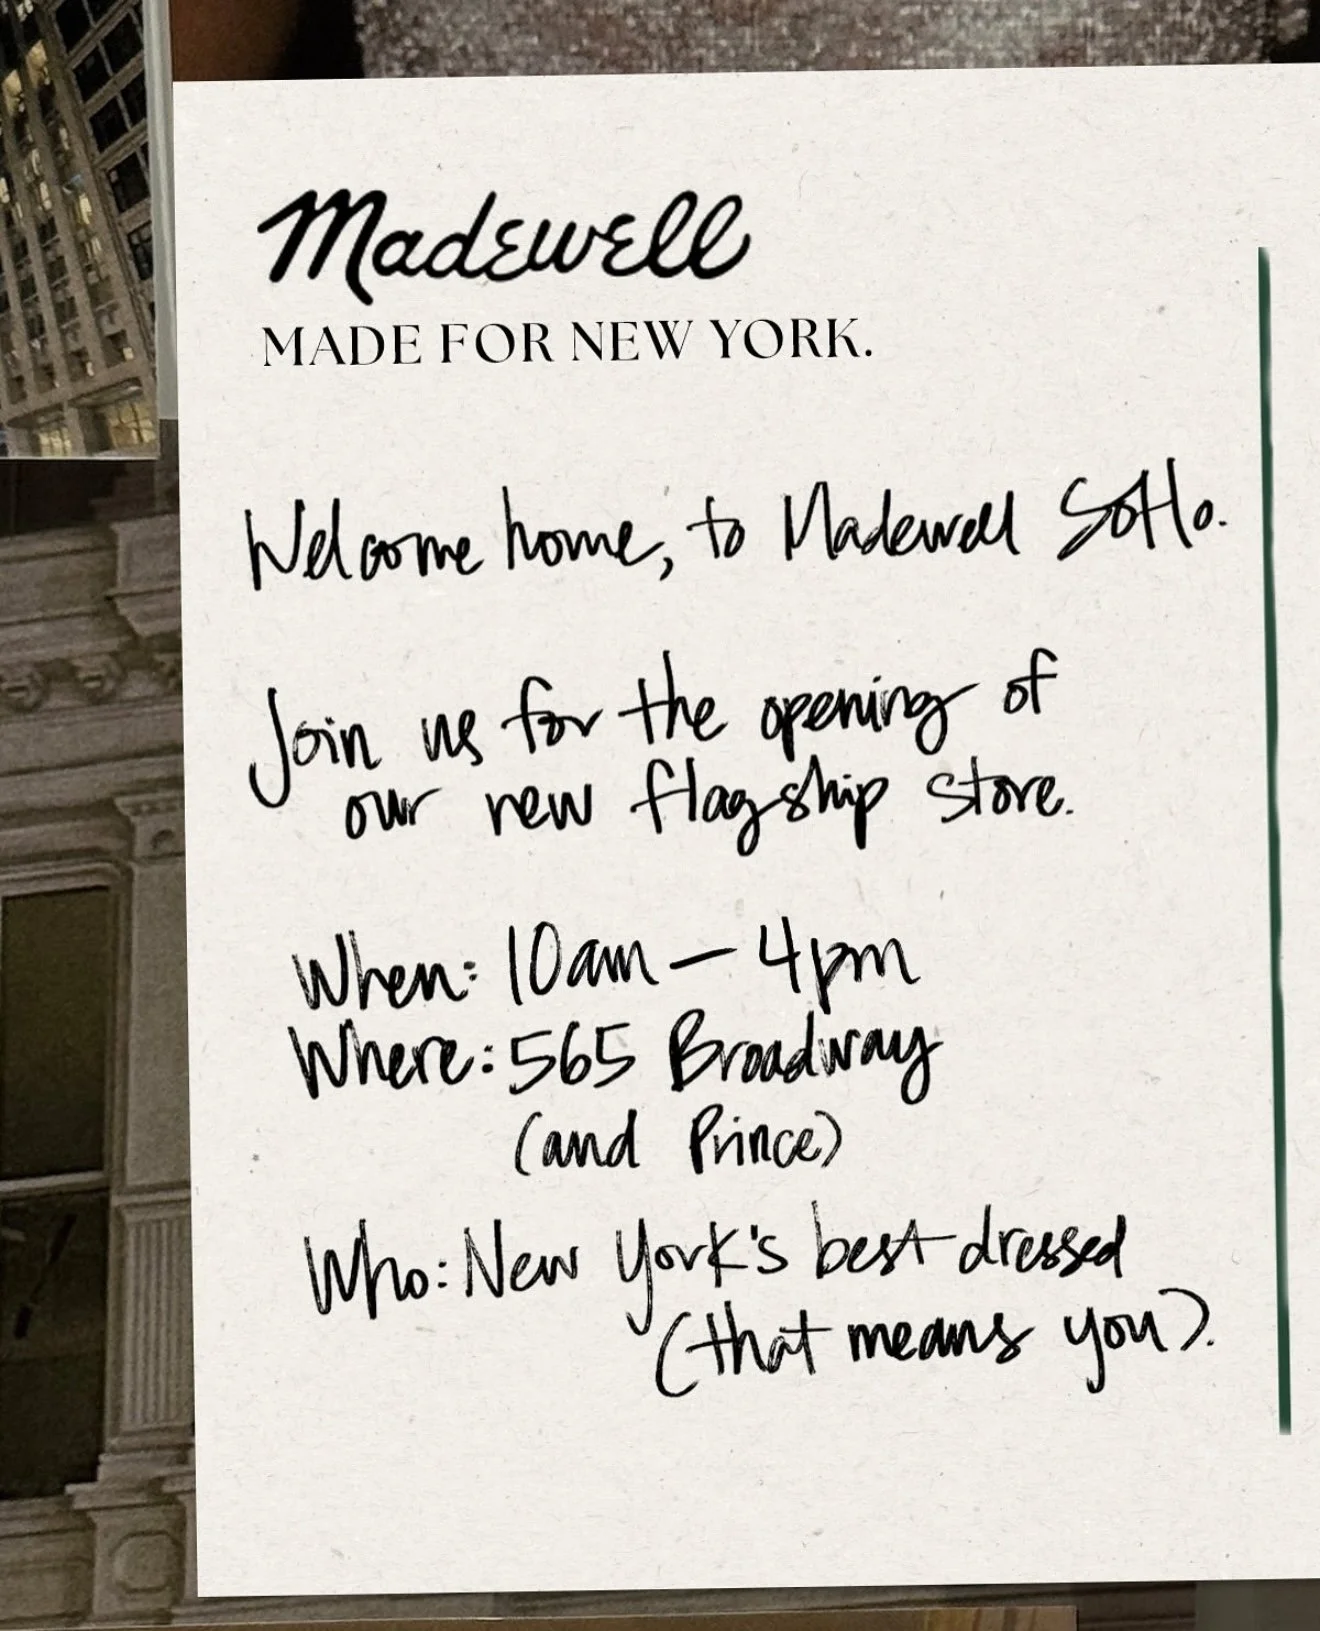 Madewell
MADE FOR NEW YORK.
Welcome home, to Madewell SoHo.
Join us for the opening of
our new flagship store.
When: 10am — 4pm
Where: 565 Broadway
(and Prince)
Who: New York's best-dressed
(that means you).